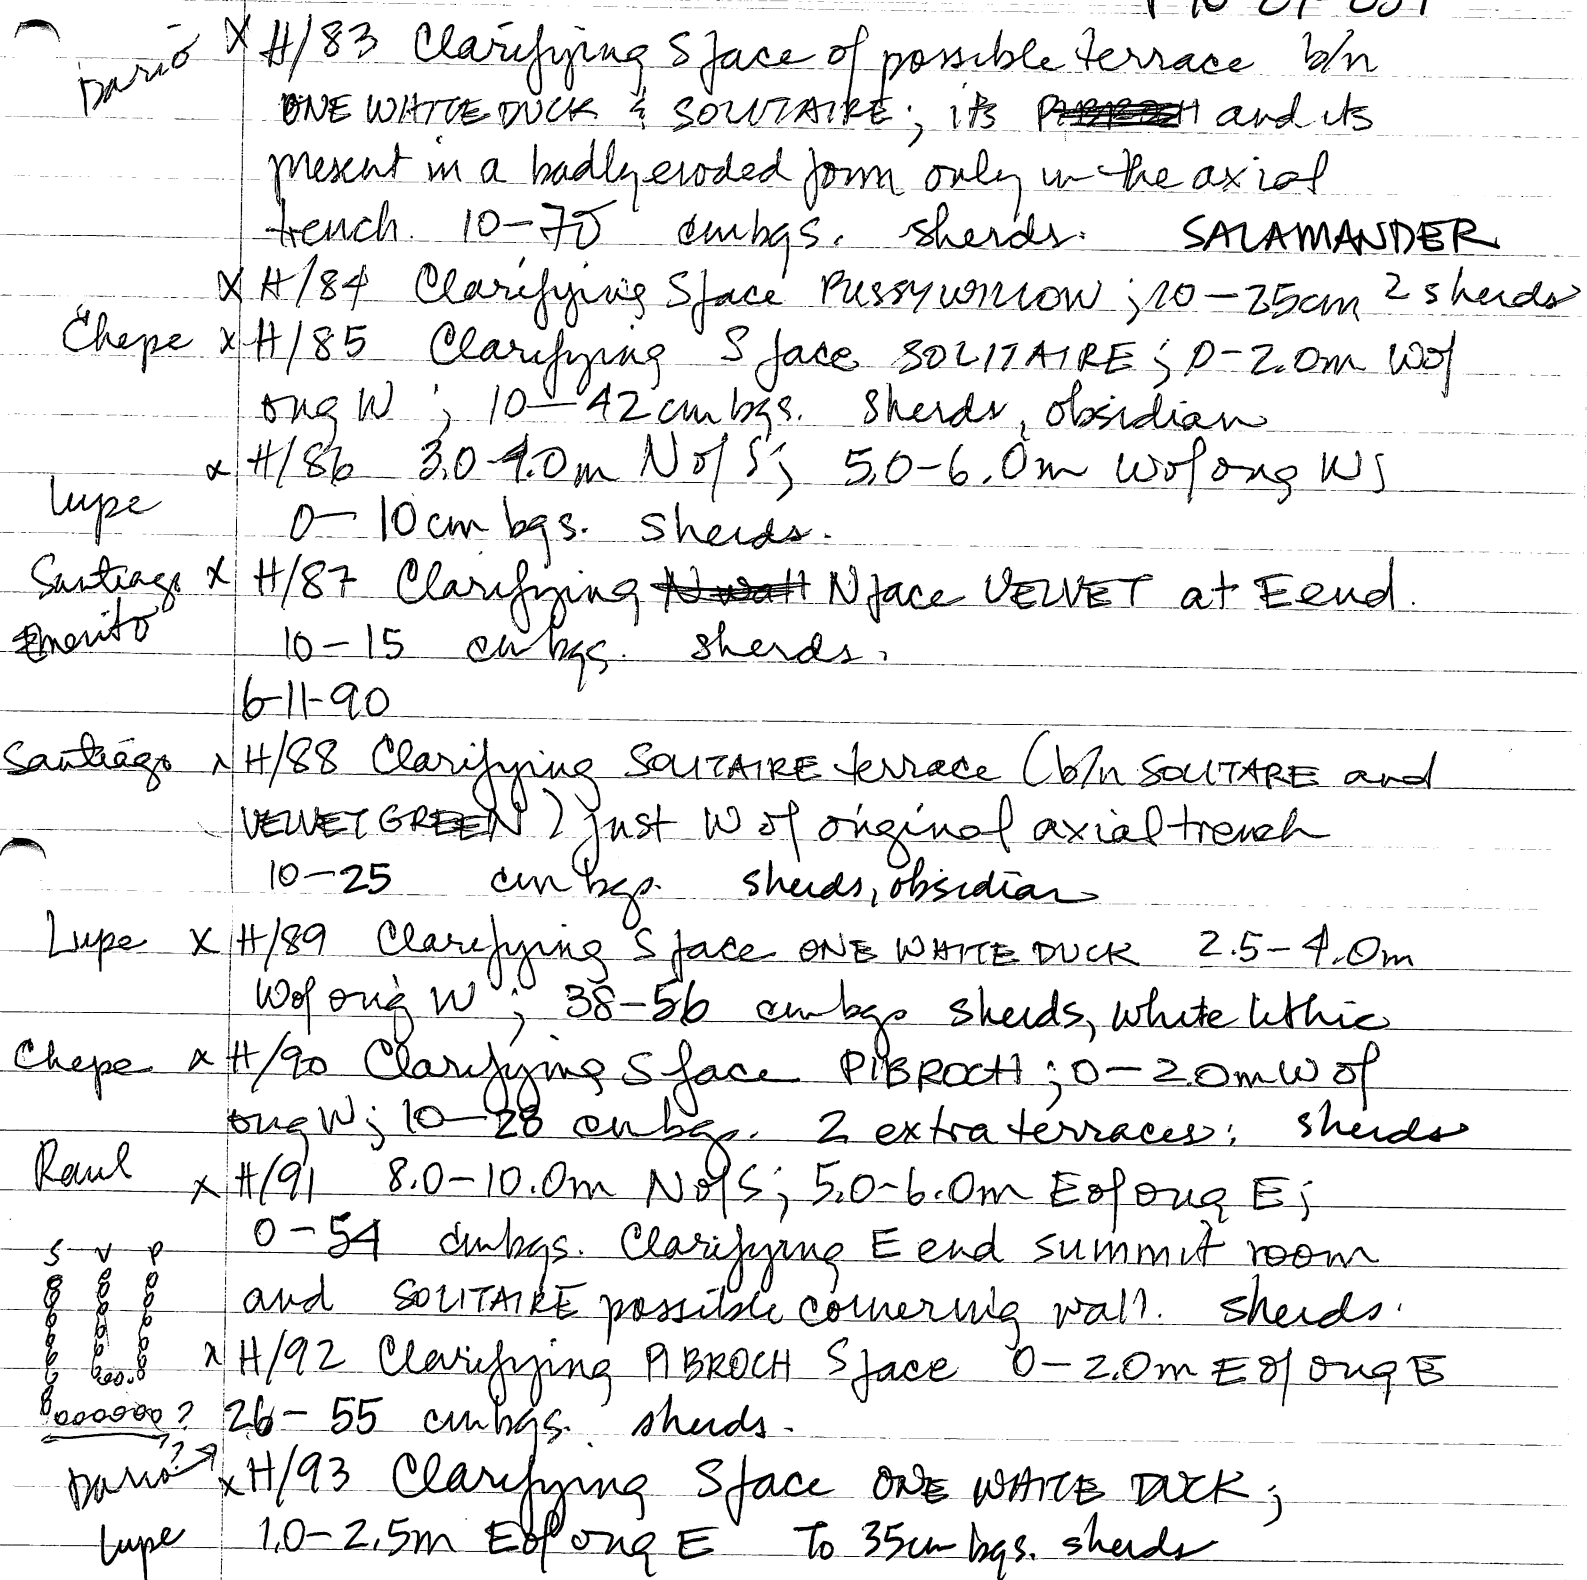 Dario x H/83 Clarifying S face of possible terrace b/n
ONE WHITE DUCK & SOLITAIRE; its PIBROCH and its
present in a badly eroded form only in the axial
trench. 10-70 cmbgs. sherds. SALAMANDER
x H/84 Clarifying S face PUSSYWILLOW; 20-25cm 2 sherds
Chepe x H/85 Clarifying S face SOLITAIRE; 0-2.0m W of
orig W; 10-42cm bgs. sherds, obsidian
x H/86 3.0-4.0m N of S; 5.0-6.0m W of orig W;
Lupe
0-10cm bgs. sherds.
Santiago x H/87 Clarifying N wall N face VELVET at E end.
Emerito 10-15 cm bgs. sherds.
6-11-90
Santiago x H/88 Clarifying SOLITAIRE terrace (b/n SOLITARE and
VELVET GREEN) just W of original axial trench
10-25 cm bgs. sherds, obsidian
Lupe x H/89 Clarifying S face ONE WHITE DUCK 2.5-4.0m
W of orig W; 38-56 cm bgs sherds, white lithic
Chepe x H/90 Clarifying S face PIBROCH; 0-2.0m W of
orig W; 10-28 cm bgs. 2 extra terraces; sherds
Raul x H/91 8.0-10.0m N of S; 5.0-6.0m E of orig E;
0-54 cmbgs. Clarifying E end summit room
S V P
and SOLITAIRE possible cornering wall. sherds.
x H/92 Clarifying PIBROCH S face 0-2.0m E of orig E
? 26-55 cm bgs. sherds.
Dario?? x H/93 Clarifying S face ONE WHITE DUCK;
Lupe 1.0-2.5m E of orig E To 35cm bgs. sherds